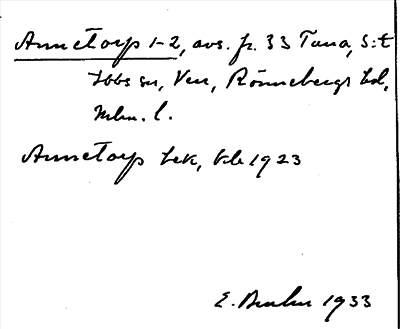 Annetorp 1-2, avs. fr. 33 Tuna, S:t
Ibbs sn, Ven, Rönnebergs hd,
Mlm. l.
Annetorp bek, kb 1923
E. 1933